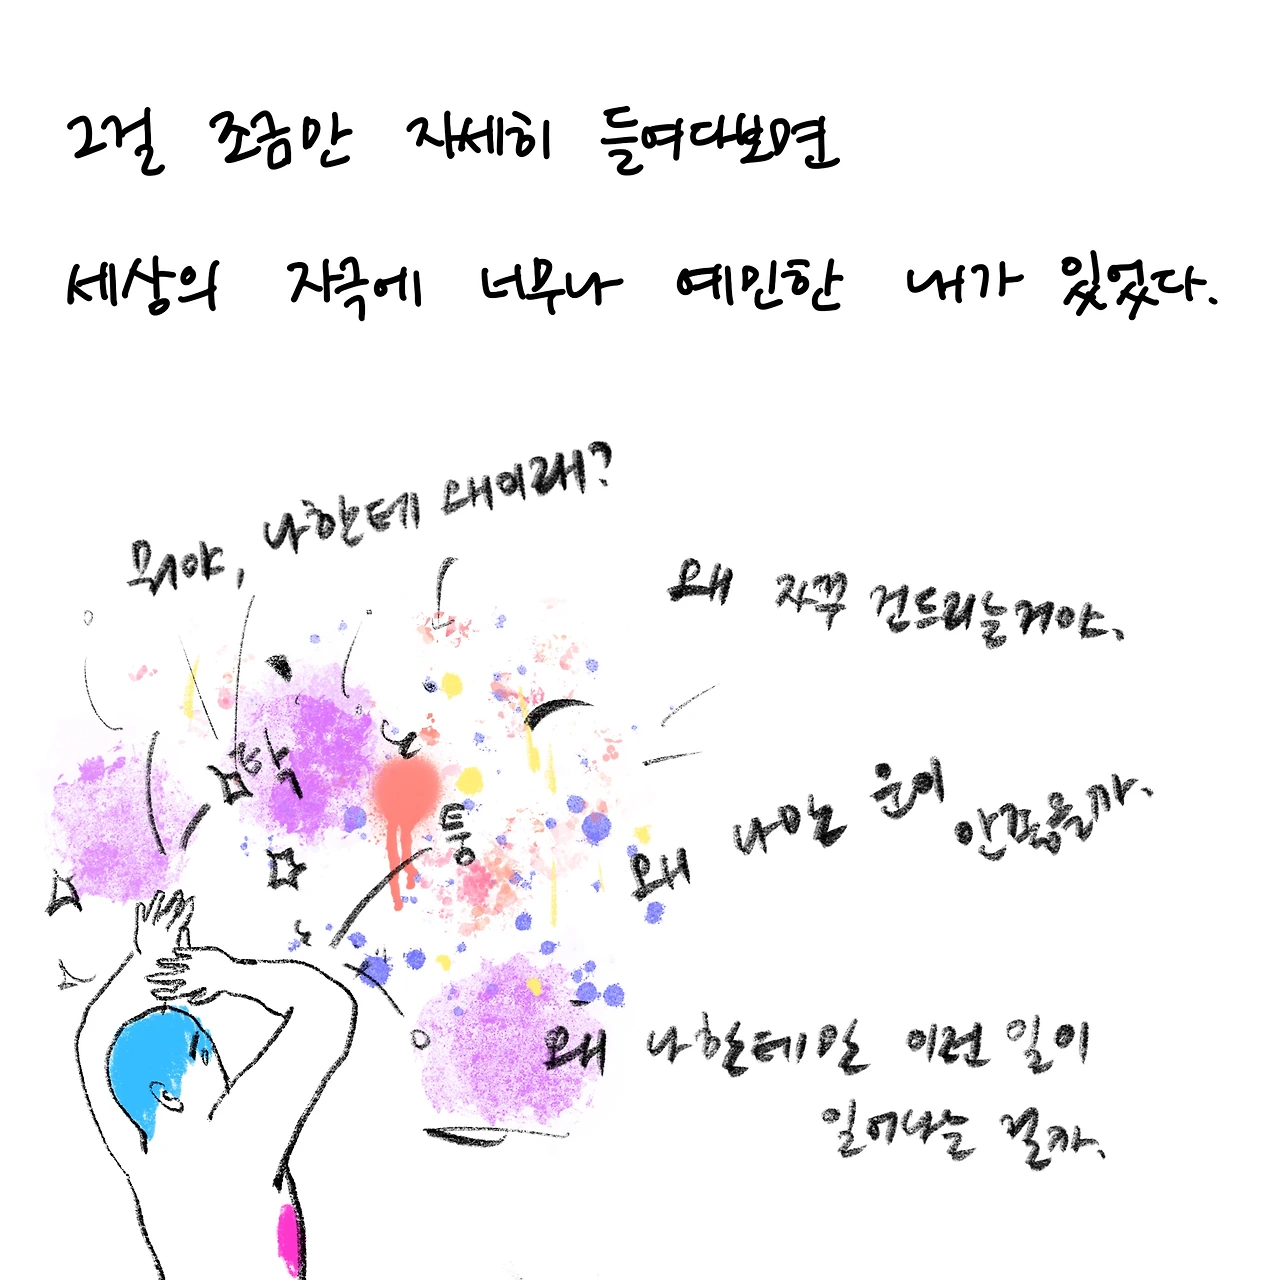 그걸 조금만 자세히 들여다보면
세상의 자극에 너무나 예민한 내가 있었다.
뭐야, 나한테 왜이래?
왜 자꾸 건드리는거야.
탁
퉁
왜 나만 운이 안좋을까.
왜 나한테만 이런 일이
일어나는 걸까.